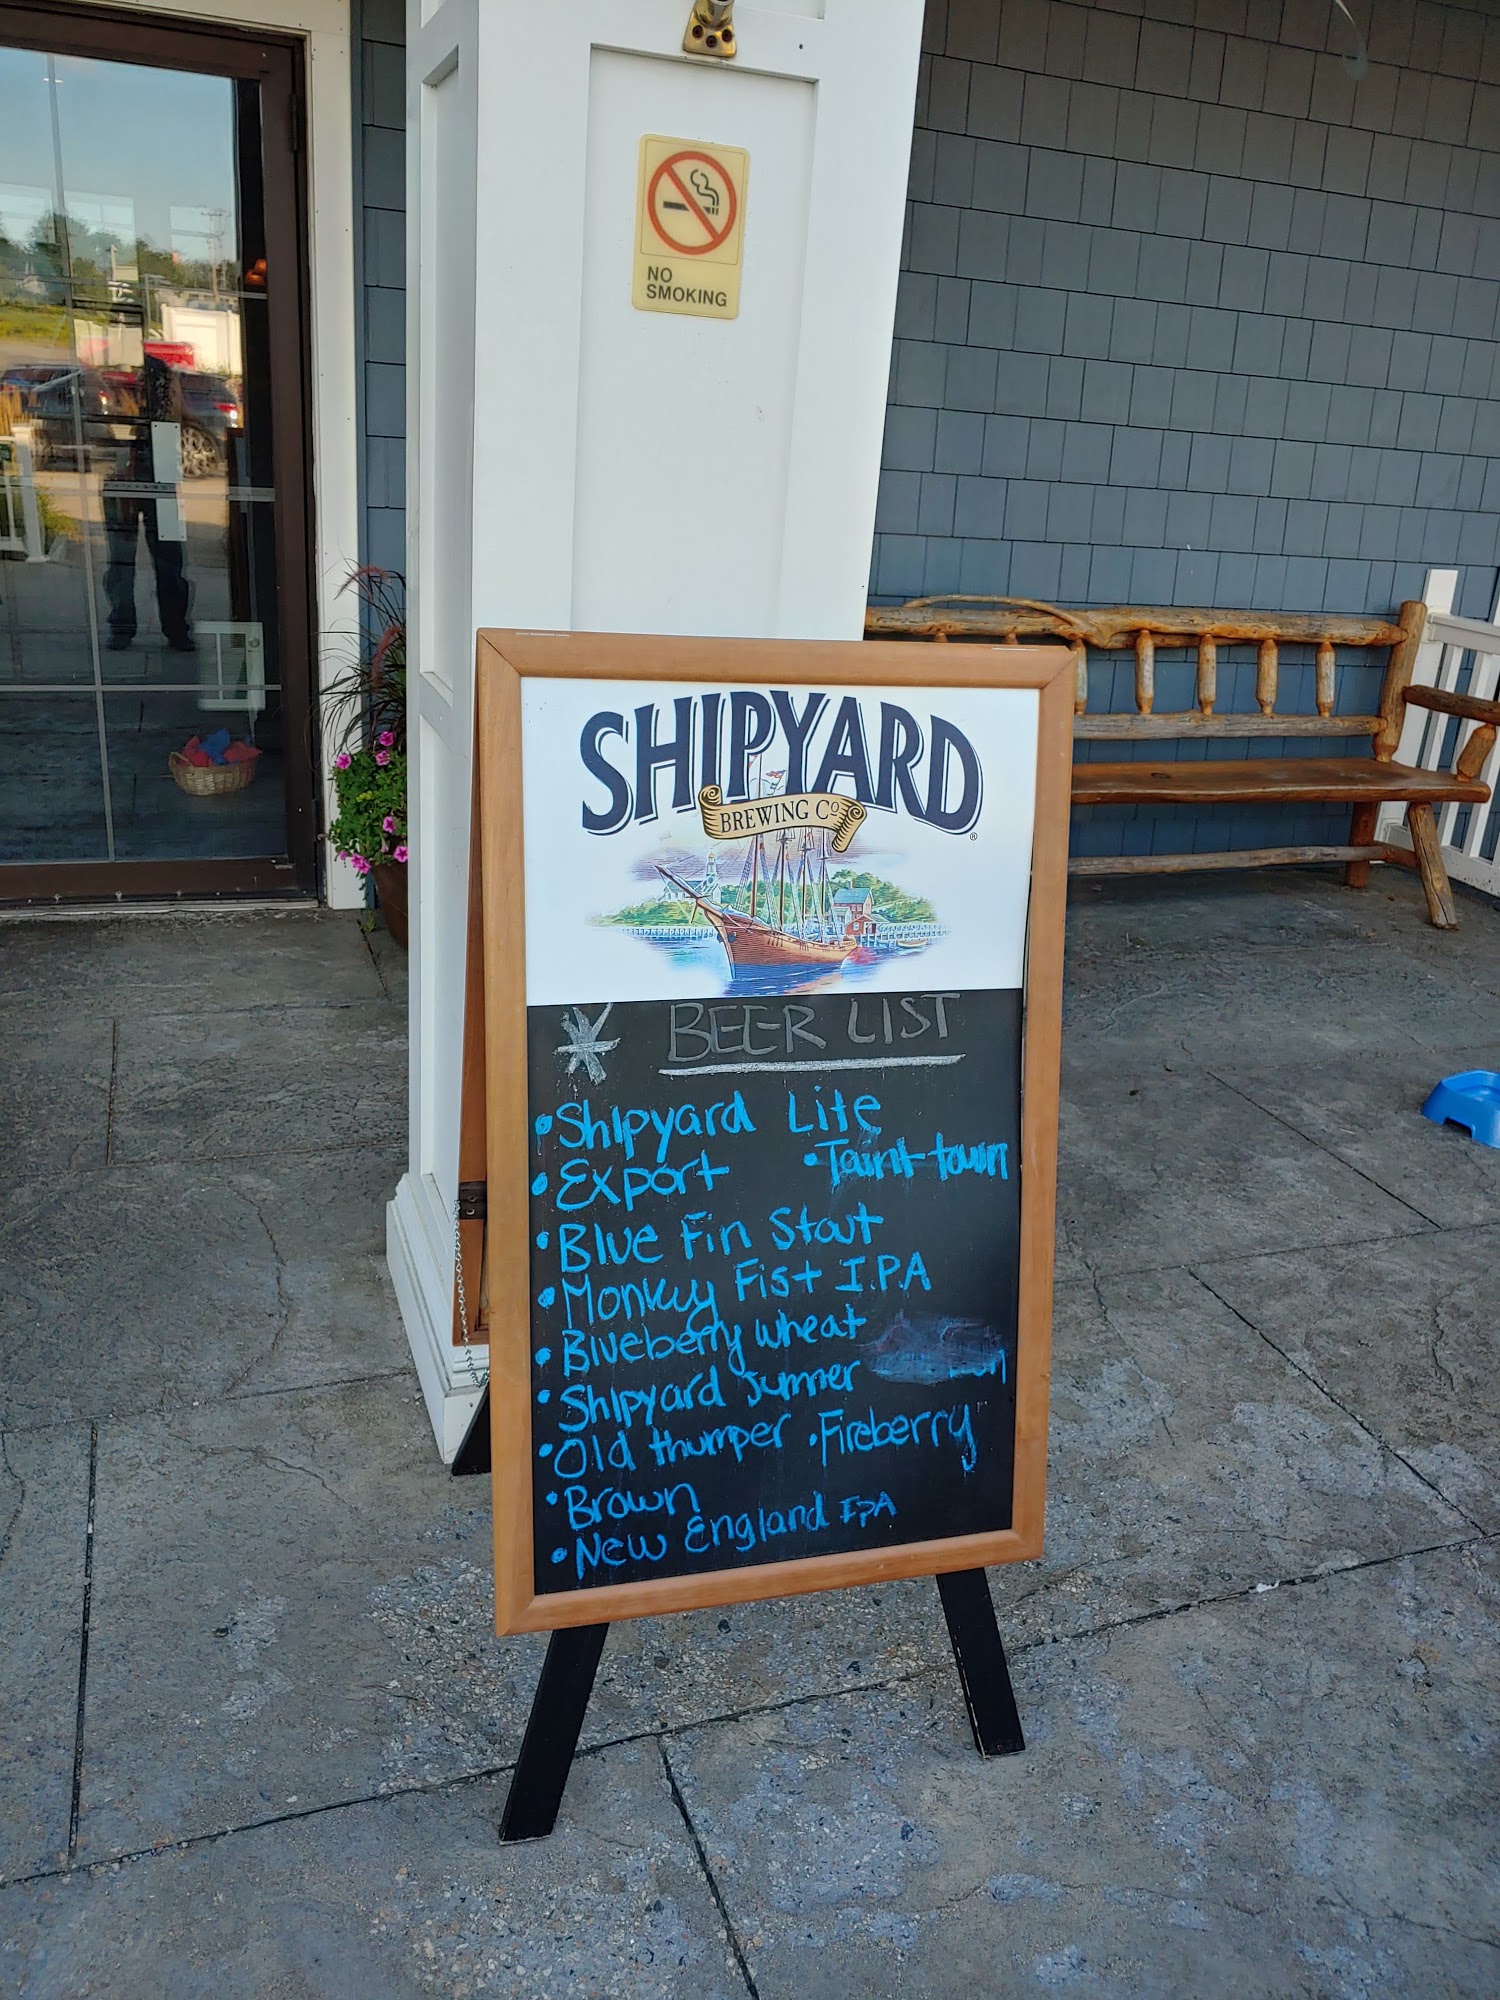 NO
SMOKING
SHIPYARD
BREWING Co
®
* BEER LIST
• Shipyard Lite
• Export • Taint town
• Blue Fin Stout
• Monkey Fist I.P.A
• Blueberry wheat
• Shipyard Summer
• Old thumper • Fireberry
• Brown
• New England IPA